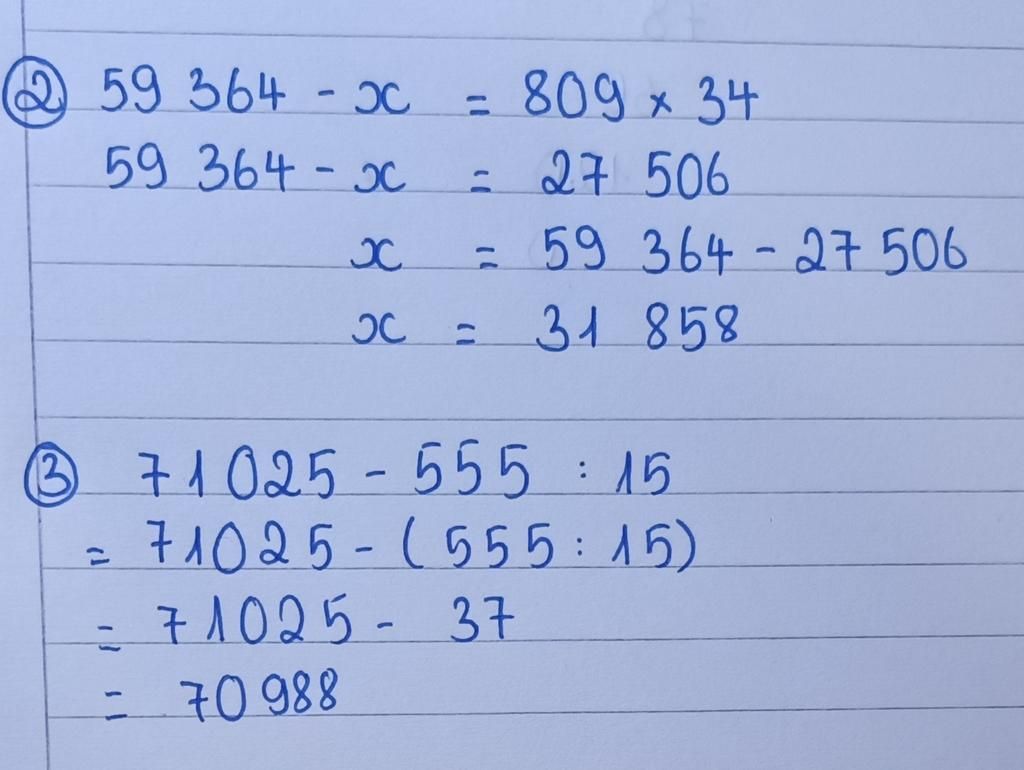 ② 59 364 - x = 809 × 34
59 364 - x = 27 506
x = 59 364 - 27 506
x = 31 858
③ 71025 - 555 : 15
= 71025 - (555 : 15)
= 71025 - 37
= 70988